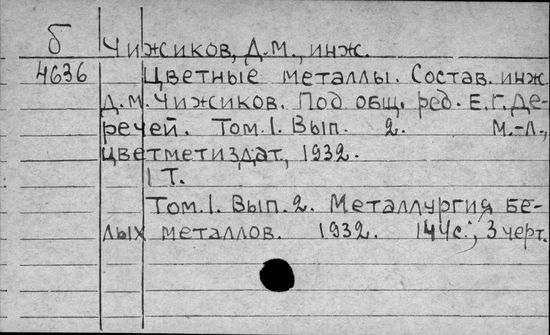 б Чижиков, Д.М., инж.
4636 Цветные металлы. Состав. инж
Д.М. Чижиков. Под общ. ред. Е.Г. Де-
речей. Том.1. Вып. 2. М.-Л.,
цветметиздат, 1932.
1 т.
Том.1. Вып. 2. Металлургия бе-
лых металлов. 1932. 144 с.; 3 черт.